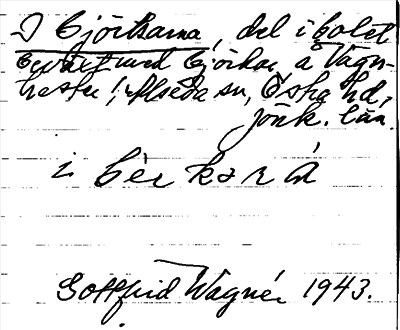 I Björkarna, del i bolet
bevuxet med björkar å Vagn-
hester, Alseda sn, Östra hd,
Jönk. län.
i bèrkará
Gottfrid Wagnér 1943.